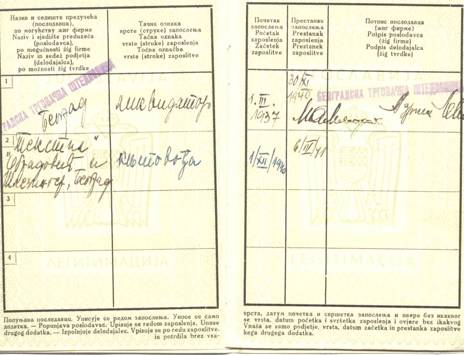 Назив и седиште предузећа
(послодавца),
по могућству жиг фирме
Naziv i sjedište preduzeća
(poslodavca),
po mogućnosti žig firme
Naziv in sedež podjetja
(delodajalca),
po možnosti žig tvrdke
Тачна ознака
врсте (струке) запослења
Točna oznaka
vrste (struke) zaposlenja
Točna označba
vrste (stroke) zaposlitve
1
Београд
ликвидатор
2
Текстил
књиговођа
Београд
3
4
Попуњава послодавац. Уписује се редом запослења. Уноси се само
додатка. — Popunjava poslodavac. Upisuje se redom zaposlenja. Unose
drugog dodatka. — Izpolnjuje delodajalec. Vpisuje se po redu zaposlitve.
in potrdila brez vsa-
Почетак
запослења
Početak
zaposlenja
Začetek
zaposlitve
Престанак
запослења
Prestanak
zaposlenja
Prestanek
zaposlitve
Потпис послодавца
(жиг фирме)
Potpis poslodavca
(žig firme)
Podpis delodajalca
(žig tvrdke)
1. III.
1937
30/XI
1940
БЕОГРАДСКА ТРГОВАЧКА ШТЕДИОНИЦА
1/XII/1940
6/IV/41
врста, датум почетка и свршетка запослења и овере без икаквог
se vrsta, datum početka i svršetka zaposlenja i ovjere bez ikakvog
Vnaša se samo podjetje, vrsta, datum začetka in prestanka zaposlitve
kega drugega dodatka.